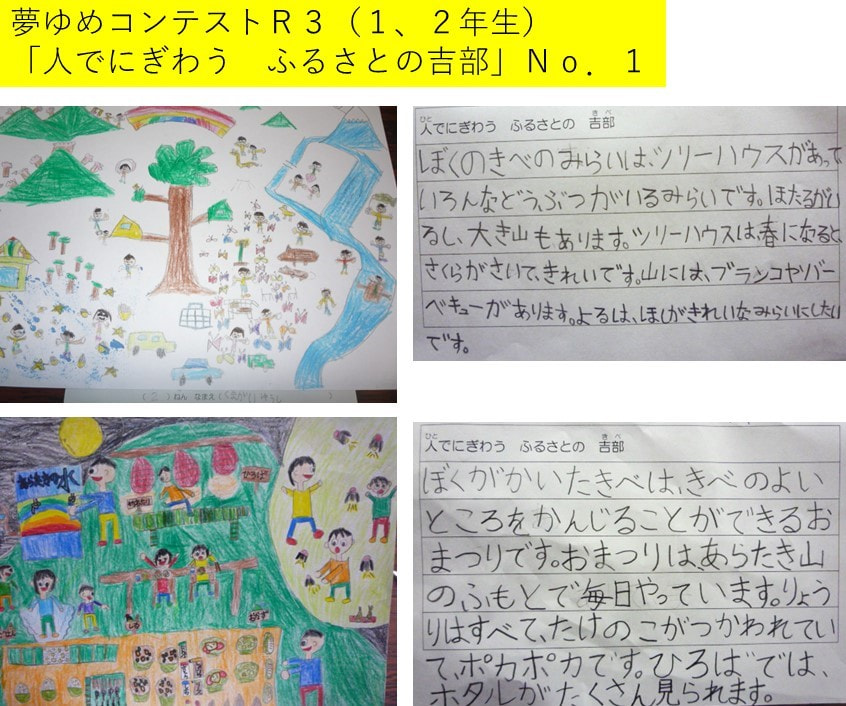 夢ゆめコンテストＲ３（１、２年生）
「人でにぎわう　ふるさとの吉部」Ｎｏ．１
ひと　きべ
人でにぎわう　ふるさとの　吉部
ぼくのきべのみらいは、ツリーハウスがあって
いろんなどうぶつがいるみらいです。ほたるがい
るし、大き山もあります。ツリーハウスは、春になると、
さくらがさいて、きれいです。山には、ブランコやバー
ベキューがあります。よるは、ほしがきれいなみらいにしたい
です。
(２)ねん なまえ(
ひと　きべ
人でにぎわう　ふるさとの　吉部
ぼくがかいたきべは、きべのよい
ところをかんじることができるお
まつりです。おまつりは、あらたき山
の、ふもとで毎日やっています。りょう
りはすべて、たけのこがつかわれてい
て、ポカポカです。ひろばでは、
ホタルがたくさん見られます。
あらたきの水